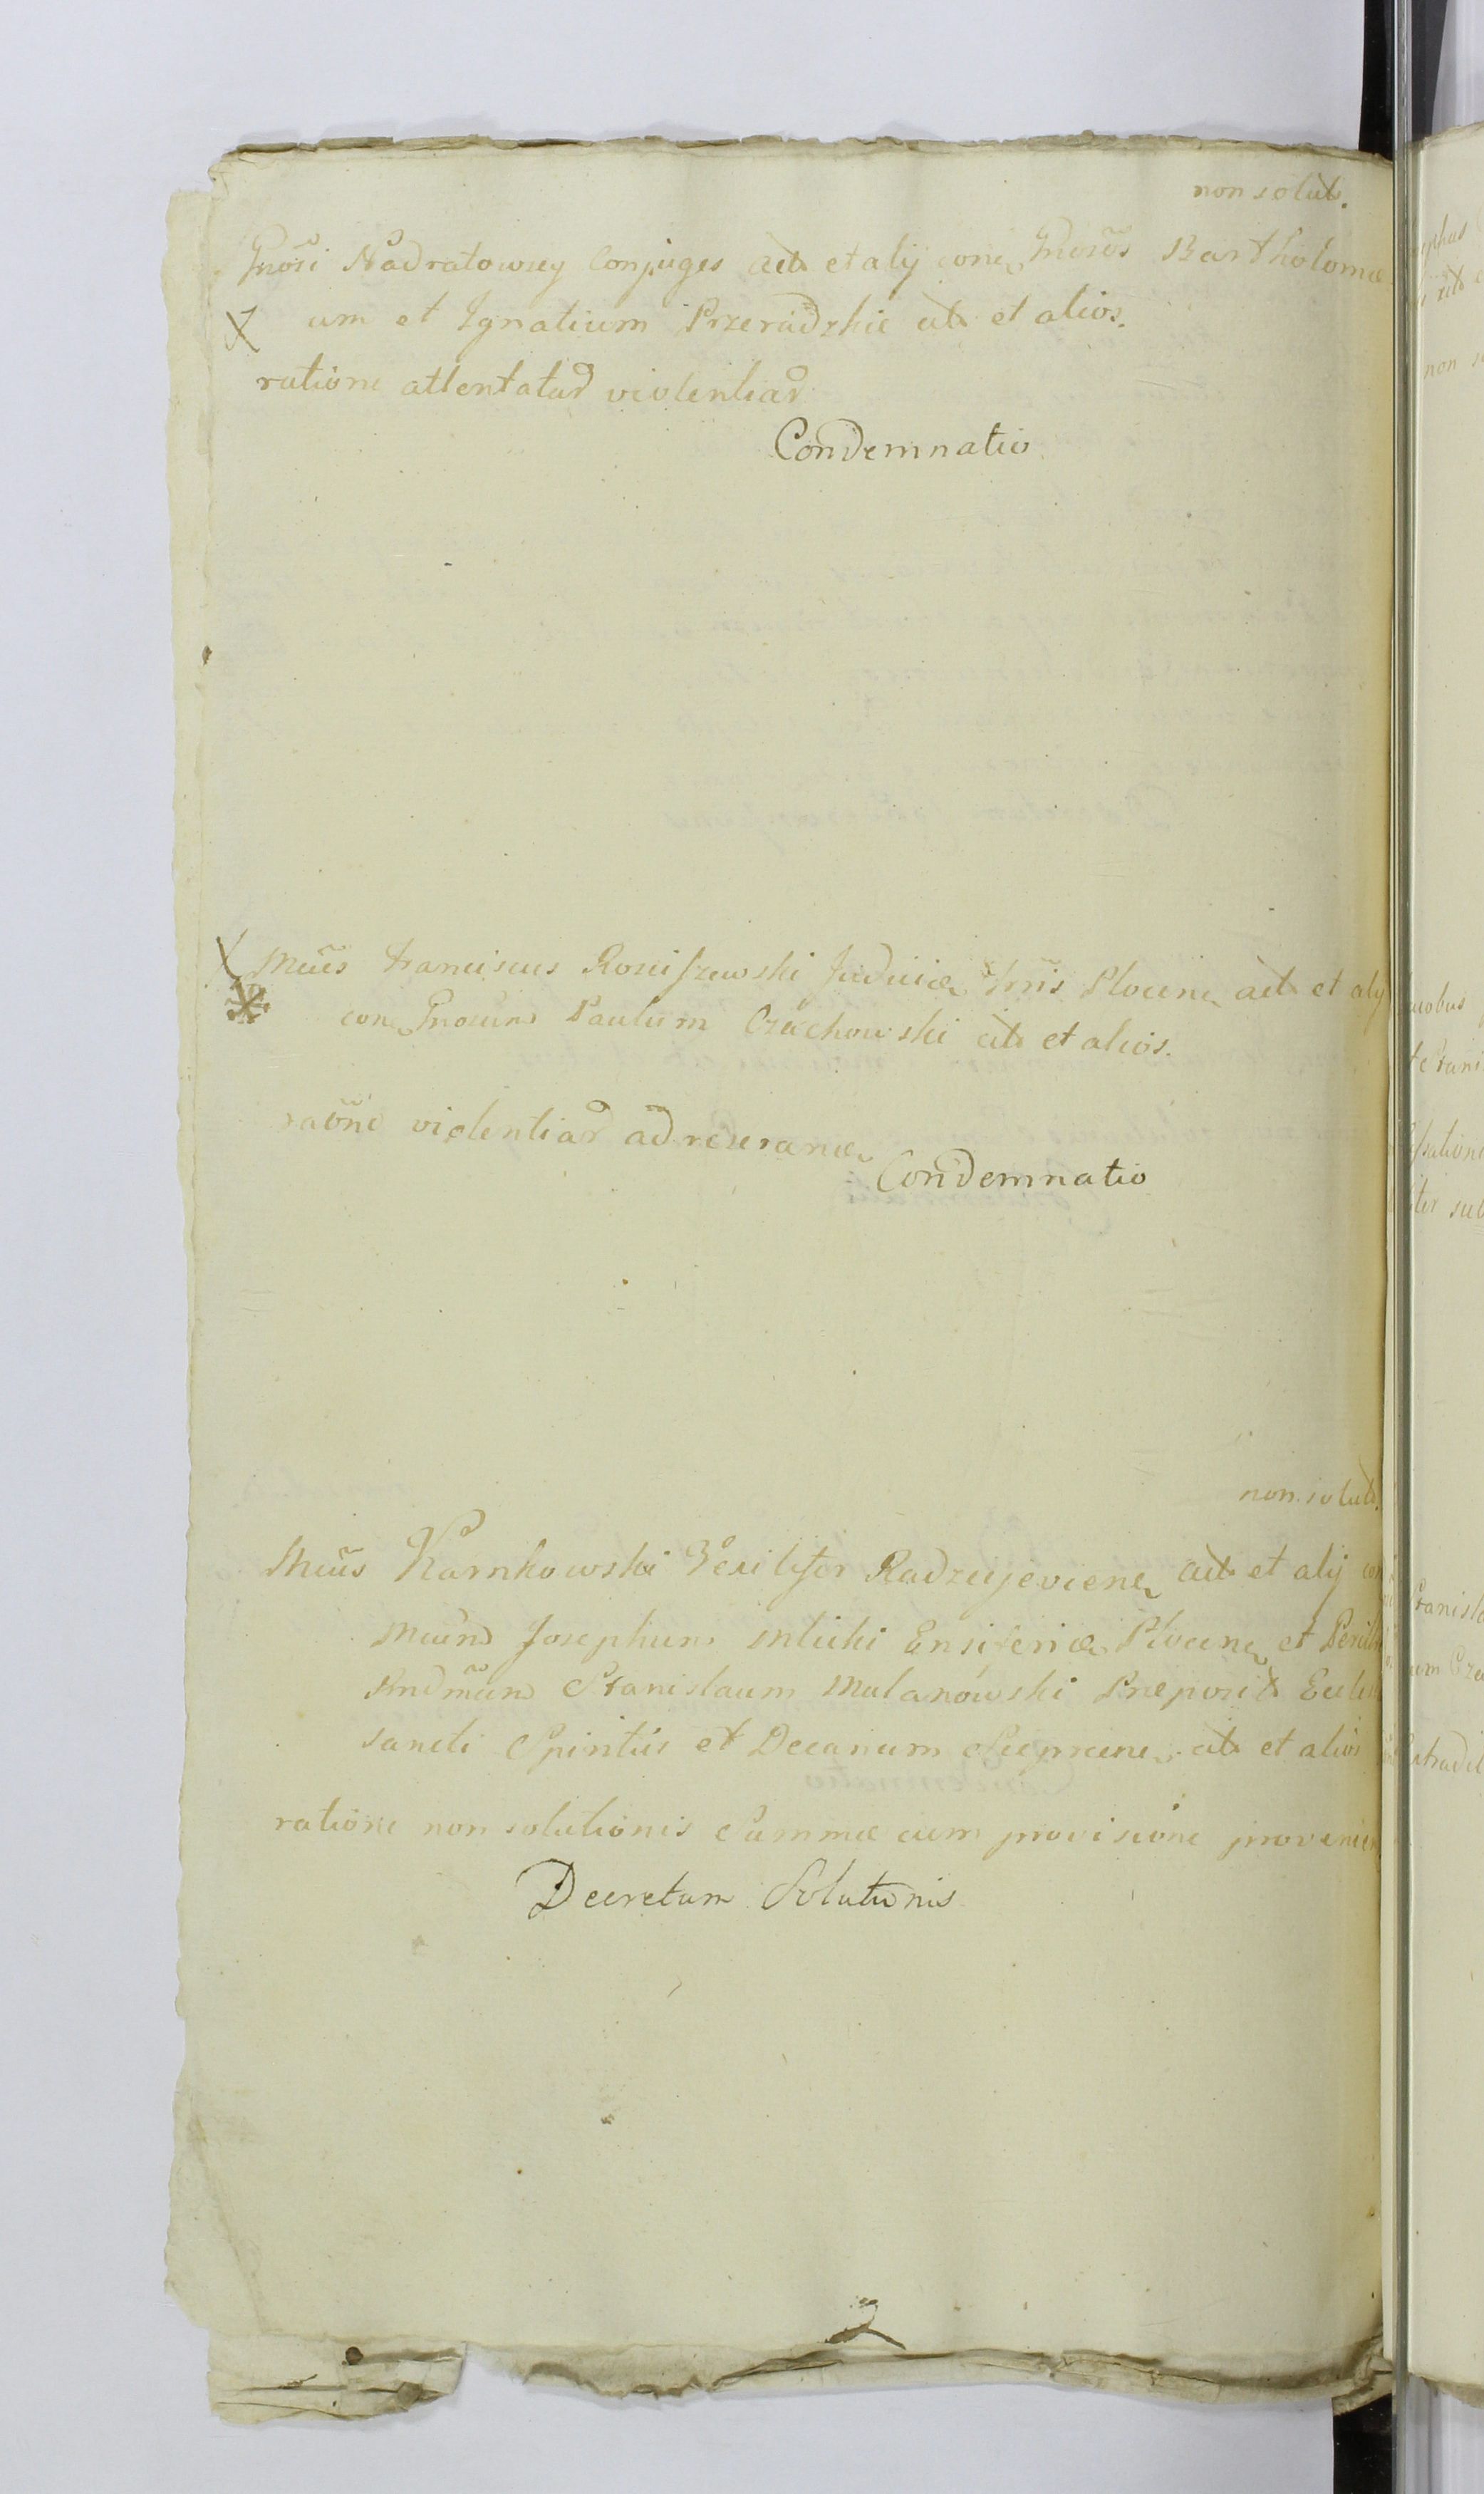 non solut.
Gnosi Nadratowscy Conjuges act et alij con Gnosos Bartholomæ
um et Ignatium Przeradzkie cit et alios.
ratione attentatar violentiar
Condemnatio
Mcus Franciscus Rosciszewski Judicia Trris Plocen act et alij
con Gnosum Paulum Czachowski cit et alios.
raone violentiar
Condemnatio
non solut.
Mcus Karnkowski Vexilifer Radziejevien act et alij con
Mcum Josephum Mlicki Ensifer Plocen et Perill
Rndmum Stanislaum Mulanowski Præposit Eccles
Sancti Spiritus et Decanum Sieprcen cit et alios
ratione non solutionis Summæ cum provisione provenien
Decretum Solutionis